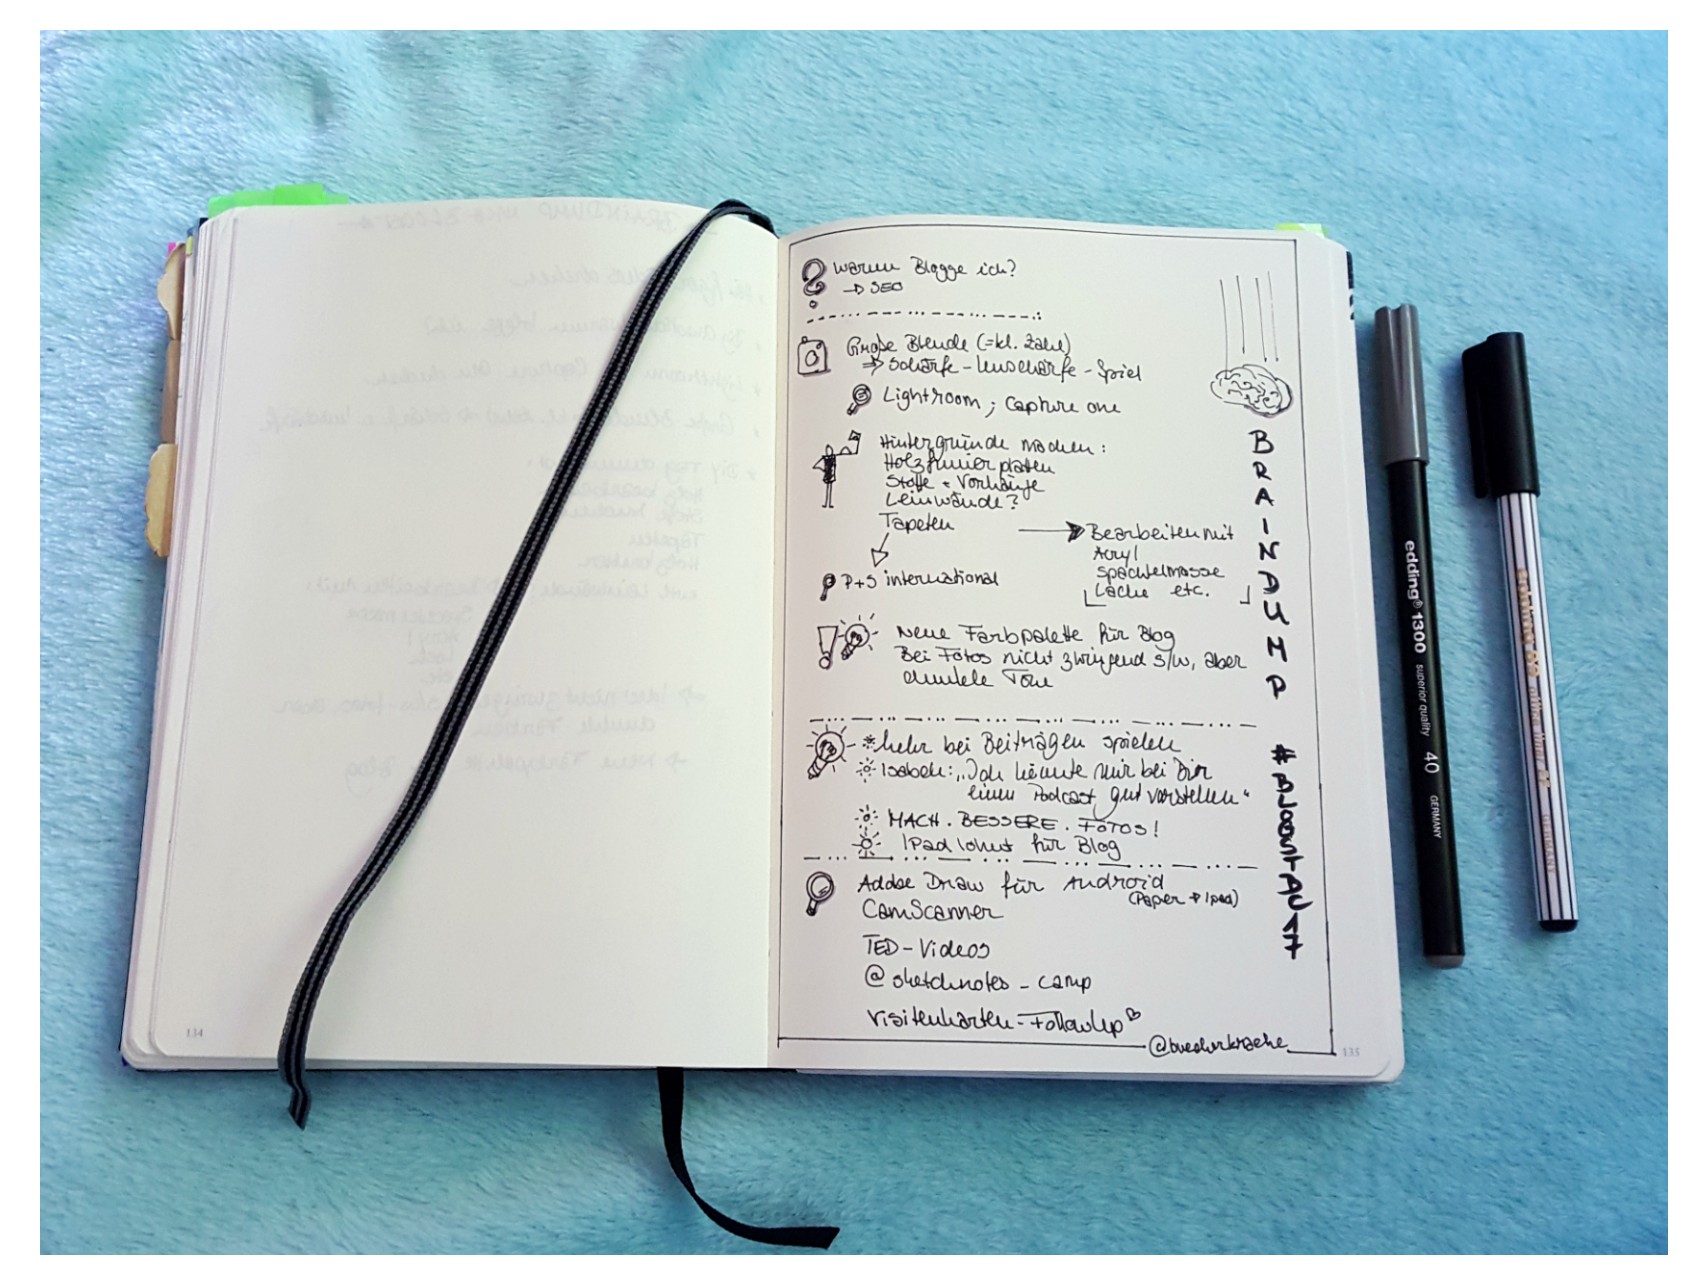 Warum Blogge ich?
→ SEO
Große Blende (=kl. Zahl)
⇒ Schärfe-Unschärfe-Spiel
Lightroom; Capture one
Hintergründe machen:
Holzfunierplatten
Stoffe + Vorhänge
Leinwände?
Tapeten
→ Bearbeiten mit
Acryl
Spachtelmasse
Lacke etc.
P+S international
Neue Farbpalette für Blog
Bei Fotos nicht zwingend s/w, aber
dunkle Töne
Mehr bei Beiträgen spielen
Isabell: „Ich könnte mir bei Dir
einen Podcast gut vorstellen“
MACH. BESSERE. FOTOS!
IPad lohnt für Blog
Adobe Draw für Android
(Paper → Ipad)
CamScanner
TED-Videos
@sketchnotes-camp
Visitenkarten-FollowUp
BRAINDUMP
135
134
edding® 1300 superior quality 40 GERMANY